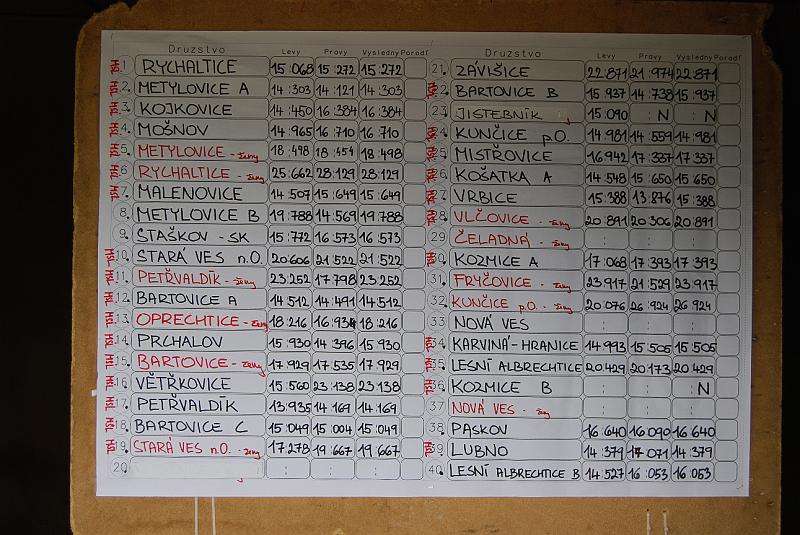 Družstvo Levy Pravy Vysledny Poradí
1. RYCHALTICE 15:068 15:272 15:272
2. METYLOVICE A 14:303 14:121 14:303
3. KOJKOVICE 14:450 16:384 16:384
4. MOŠNOV 14:965 16:710 16:710
5. METYLOVICE - ženy 18:498 18:454 18:498
6. RYCHALTICE - ženy 25:662 28:129 28:129
7. MALENOVICE 14:507 15:649 15:649
8. METYLOVICE B 19:788 14:569 19:788
9. STAŠKOV - SK 15:772 16:573 16:573
10. STARÁ VES n.O. 20:606 21:522 21:522
11. PETŘVALDÍK - ženy 23:252 17:798 23:252
12. BARTOVICE A 14:512 14:491 14:512
13. OPRECHTICE - ženy 18:216 16:934 18:216
14. PRCHALOV 15:930 14:396 15:930
15. BARTOVICE - ženy 17:929 17:535 17:929
16. VĚTŘKOVICE 15:560 23:138 23:138
17. PETŘVALDÍK 13:935 14:169 14:169
18. BARTOVICE C 15:049 15:004 15:049
19. STARÁ VES n.O. - ženy 17:278 19:667 19:667
20. : : :
Družstvo Levy Pravy Vysledny Poradí
21. ZÁVIŠICE 22:871 21:974 22:871
22. BARTOVICE B 15:937 14:738 15:937
23. JISTEBNÍK 15:090 :N :N
24. KUNČICE p.O. 14:981 14:559 14:981
25. MISTŘOVICE 16:942 17:337 17:337
26. KOŠATKA A 14:548 15:650 15:650
27. VRBICE 15:388 13:876 15:388
28. VLČOVICE - ženy 20:891 20:306 20:891
29 ČELADNÁ - ženy : : :
30. KOZMICE A 17:068 17:393 17:393
31. FRYČOVICE - ženy 23:917 21:529 23:917
32. KUNČICE p.O. - ženy 20:076 26:924 26:924
33 NOVÁ VES : : :
34. KARVINÁ-HRANICE 14:993 15:505 15:505
35. LESNÍ ALBRECHTICE 20:429 20:173 20:429
36. KOZMICE B : : N
37 NOVÁ VES - ženy : : :
38. PASKOV 16:640 16:090 16:640
39. LUBNO 14:379 17:071 14:379
40. LESNÍ ALBRECHTICE B 14:527 16:053 16:053